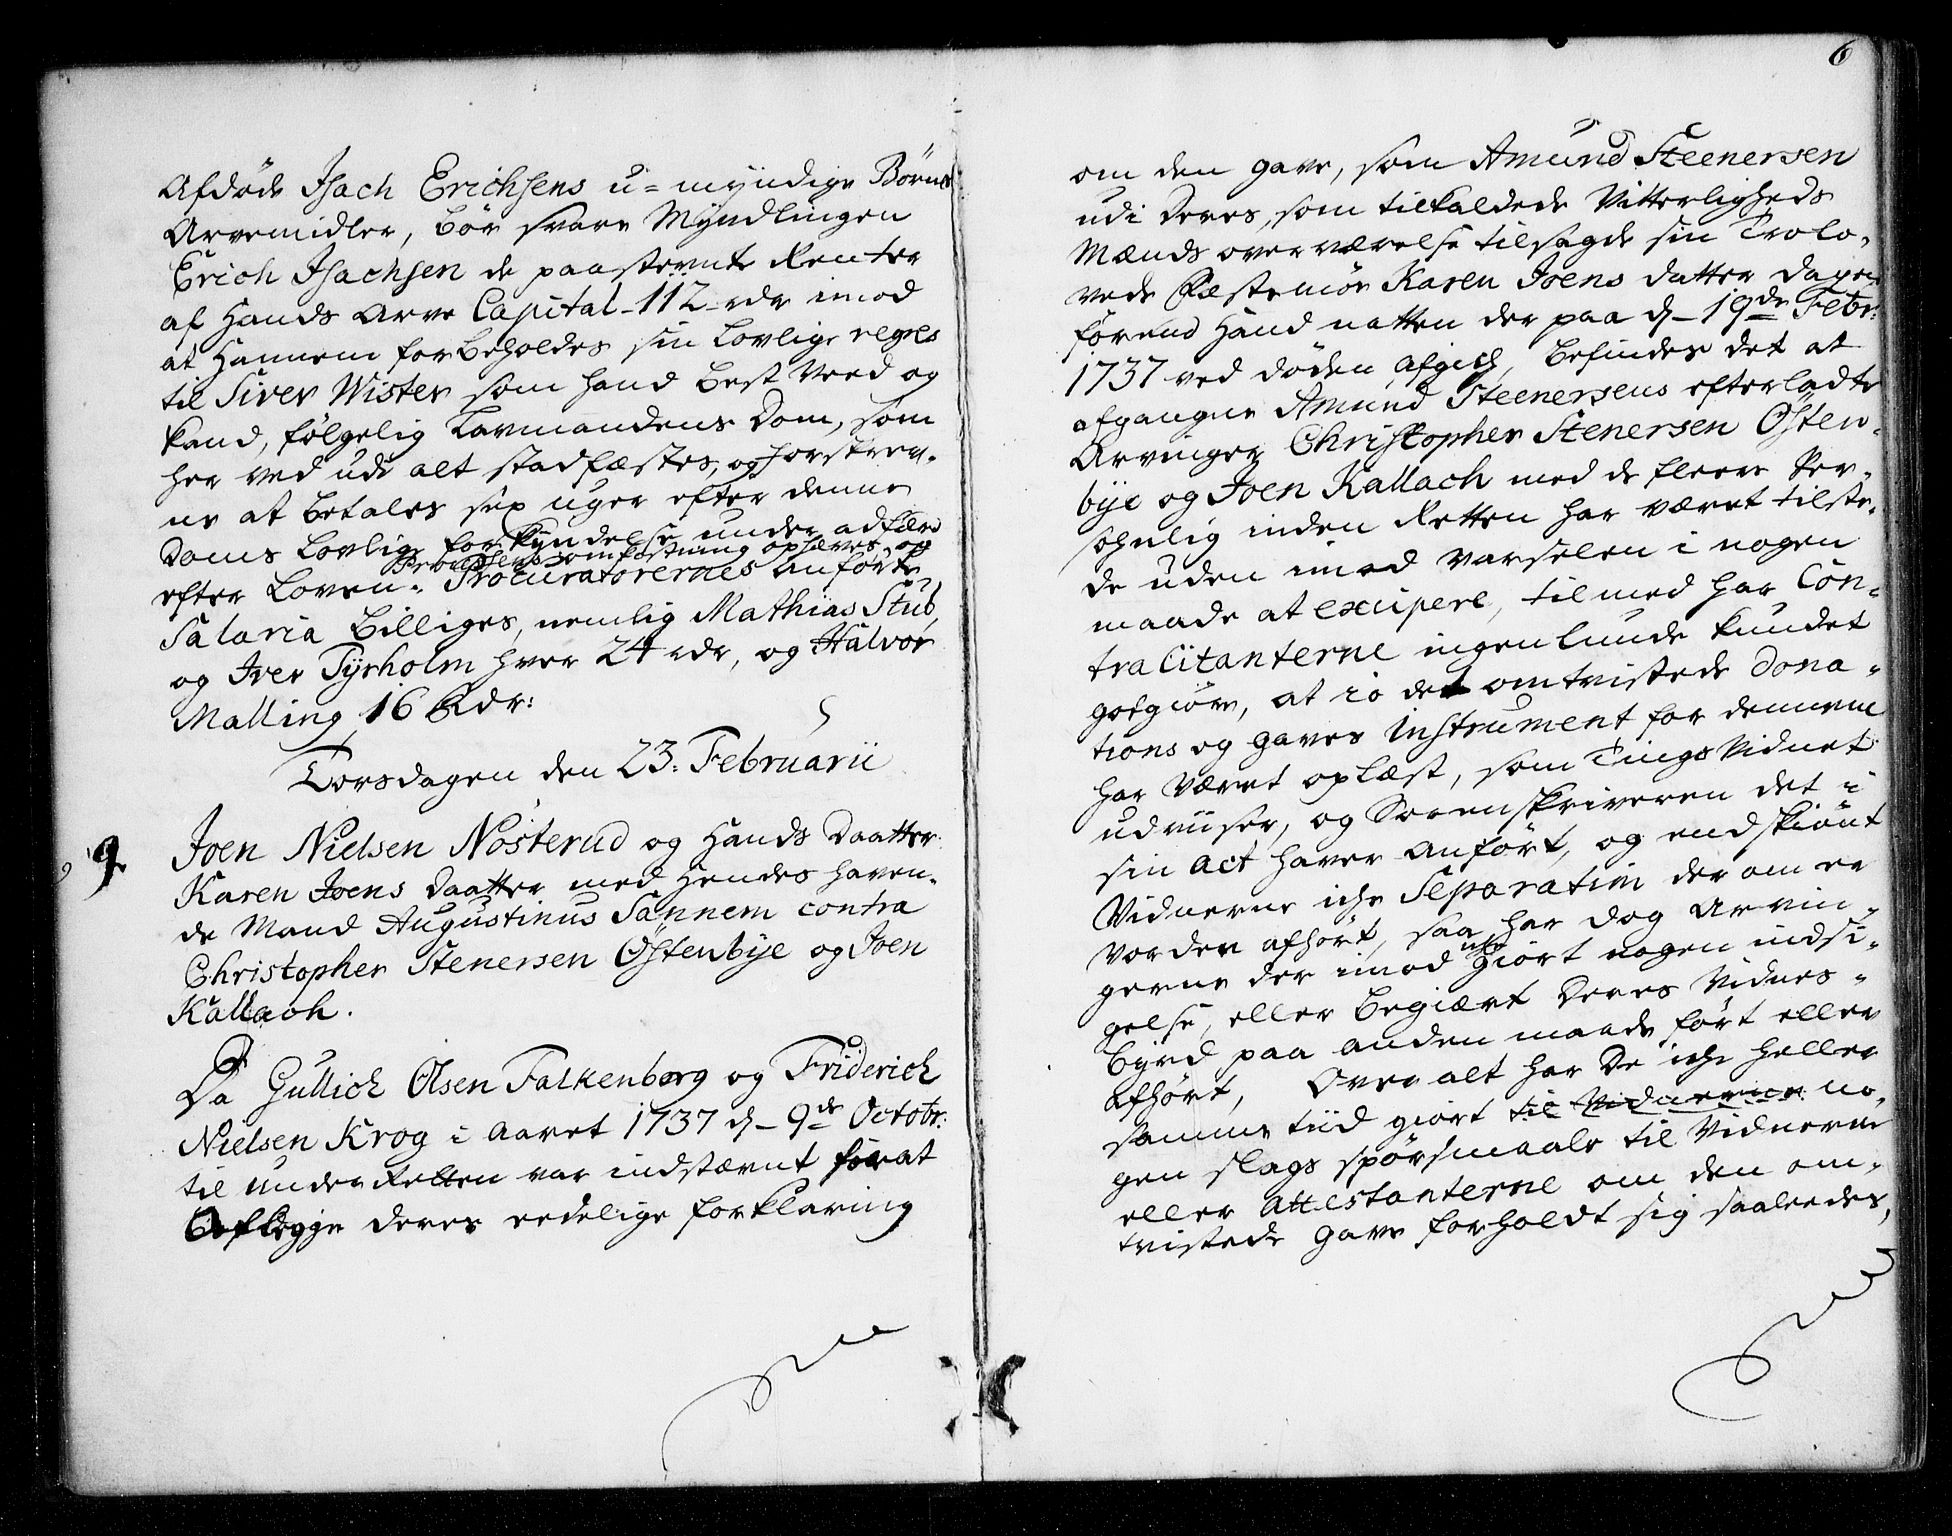 Afdøde Isach Erichsens u-myndige Børns
Arvemidler, bör svare Myndlingen
Erich Isachsen de paastevnte Renter
af Hands Arve Capital 112 rdr imod
at Hannem forbeholdes sin lovlige regres
til Siver Wister som hand best veed og
kand, følgelig Lavmandens Dom, som
her ved udi alt stadfæstes, og forskrev-
ne at betales sex uger efter denne
Doms lovlige forkyndelse under adfærd
Processens omkostning ophæves, og
efter Loven. Procuratorernes anførte
Salaria billiges, nemlig Mathias Stub,
og Iver Tyrholm hver 24 rdr, og Halvor
Malling 16 Rdr:
Torsdagen den 23: Februarii
9 9. Joen Nielsen Nösterud og Hands Daatter
Karen Joens Daatter med Hendes haven-
de Mand Augustinus Sannem contra
Christopher Stenersen Östenbÿe og Joen
Kallach.
Da Gullich Olsen Falkenborg og Friderich
Nielsen Krog i Aaret 1737 d. 9de Octobr:
til underRetten var indstævnt for at
Aflegge deres eedelige forklaring
6
om den gave, som Amund Steenersen
udi Deres, som tilkaldede Vitterligheds
Mænds overværelse tilsagde sin Trolo-
vede Fæstemöe Karen Joens datter dagen
förend Hand natten der paa d. 19de Febr:
1737 ved döden afgick, befindes det at
afgangne Amund Steenersens efterladte
Arvinger Christopher Stenersen Östen-
bÿe og Joen Kallach med de fleere Per-
sohnlig inden Retten har været tilste-
de uden imod varselen i nogen
maade at excipere, til med har Con-
tracitanterne ingenlunde kundet
gotgiöre, at io det omtvistede Dona-
tions og gaves Instrument for dennem
har været oplæst, som TingsVidnet
udviiser, og Sorenskriveren det i
sin act haver anfört, og endskiönt
Vidnerne iche Separatim der om er
vorden afhört, saa har dog Arvin-
gerne der imod iche giört nogen indsi-
gelse, eller begiært Deres Vidnes-
byrd paa anden maade fört eller
afhört, Over alt har De iche heller
samme tiid giört til Vidnerne no-
gen slags spörsmaale til Vidnerne
eller Attestanterne om den om-
tvistede gave forholdt sig saaleedes,